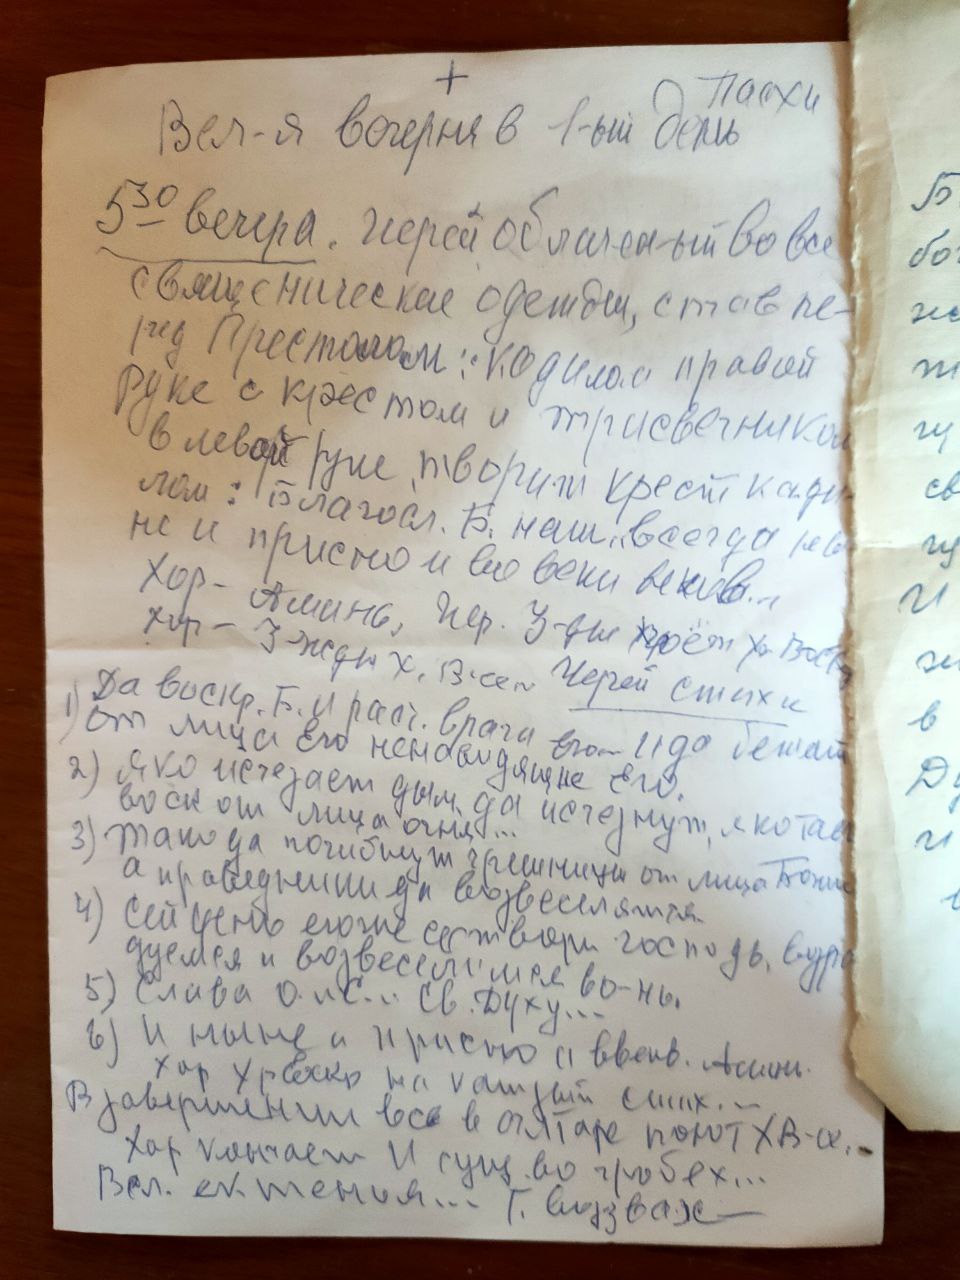 +
Пасхи
Вел-я вечерня в 1-ый день
5 30 вечера. Иерей облачен-ый во все
священические одежды, став пе-
ред Престолом: кадило в правой
руке с крестом и трисвечником
в левой руке, творит крест кади-
лом: Благосл. Б. наш, всегда
не и присно и во веки веков...
Хор - Аминь, Иер. 3-ды поёт Хр. Воск
Хор - 3-жды Х. В-се... Иерей стихи
1) Да воскр. Б. и раст. врази его... И да бежат
от лица Его ненавидящие Его.
2) Яко исчезает дым, да исчезнут, яко тает
воск от лица огня...
3) Тако да погибнут грешници от лица Божия
а праведницы да возвеселятся
4) Сей день егоже сотвори Господь, возра
дуемся и возвеселимся во-нь.
5) Слава О. и С... Св. Духу...
6) И ныне и присно и ввеков. Аминь.
Хор Хр Воскр на каждый стих...
В завершении все в олтаре поют ХВ-се...
Хор кончает И сущ. во гробех...
Вел. ектения... Г. воззвах
Б
бог
же
гу
св
гу
И
в
Ду
и
в